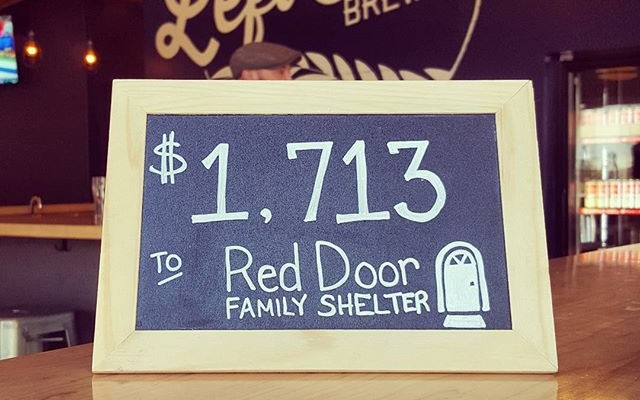 Left
BREW
$1,713
TO Red Door
FAMILY SHELTER